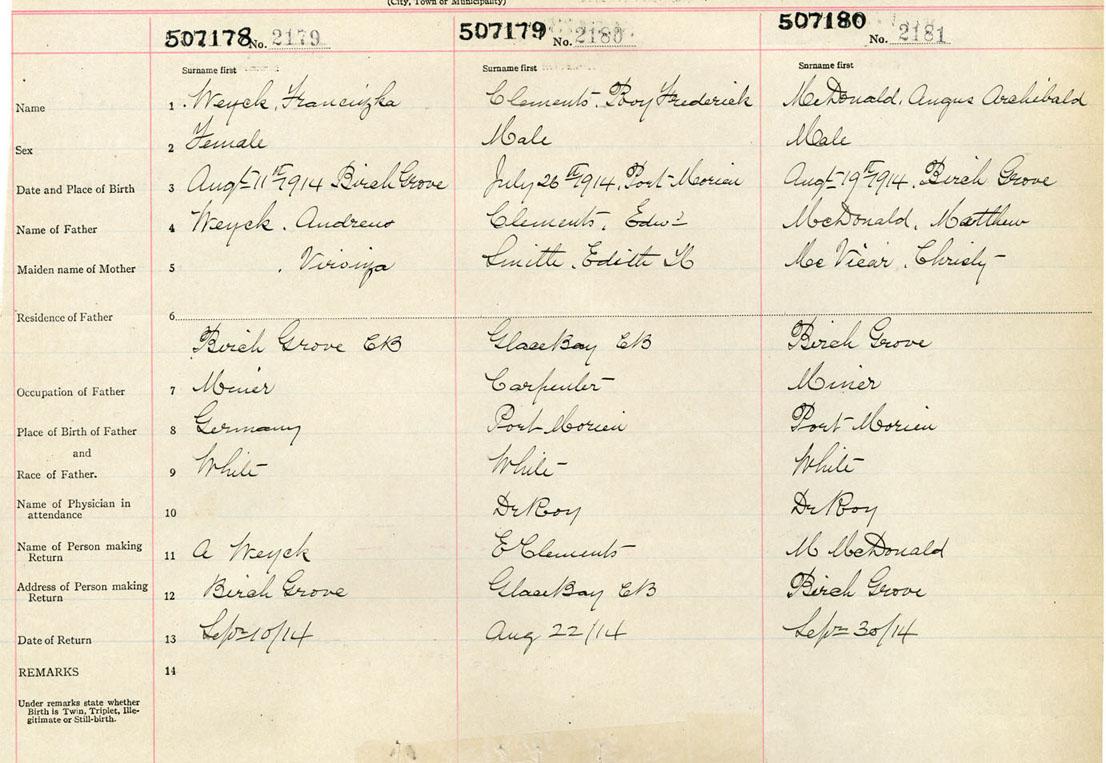 (City, Town or Municipality)
507178 No. 2179 507179 No. 2180 507180 No. 2181
Surname first Surname first Surname first
Name 1 Weyck, Franciszka Clements, Roy Frederick McDonald, Angus Archibald
Sex 2 Female Male Male
Date and Place of Birth 3 Augt 11th 1914 Birch Grove July 26th 1914, Port Morien Augt 19th 1914, Birch Grove
Name of Father 4 Weyck, Andrew Clements, Edwd McDonald, Matthew
Maiden name of Mother 5 , Smith, Edith M McVicar, Christy
Residence of Father 6
Birch Grove CB Glace Bay CB Birch Grove
Occupation of Father 7 Miner Carpenter Miner
Place of Birth of Father 8 Germany Port Morien Port Morien
and
Race of Father. 9 White White White
Name of Physician in
attendance 10 Dr Roy Dr Roy
Name of Person making
Return 11 A Weyck E Clements M McDonald
Address of Person making
Return 12 Birch Grove Glace Bay CB Birch Grove
Date of Return 13 Sept 10/14 Aug 22/14 Sept 30/14
REMARKS 14
Under remarks state whether
Birth is Twin, Triplet, Ille-
gitimate or Still-birth.